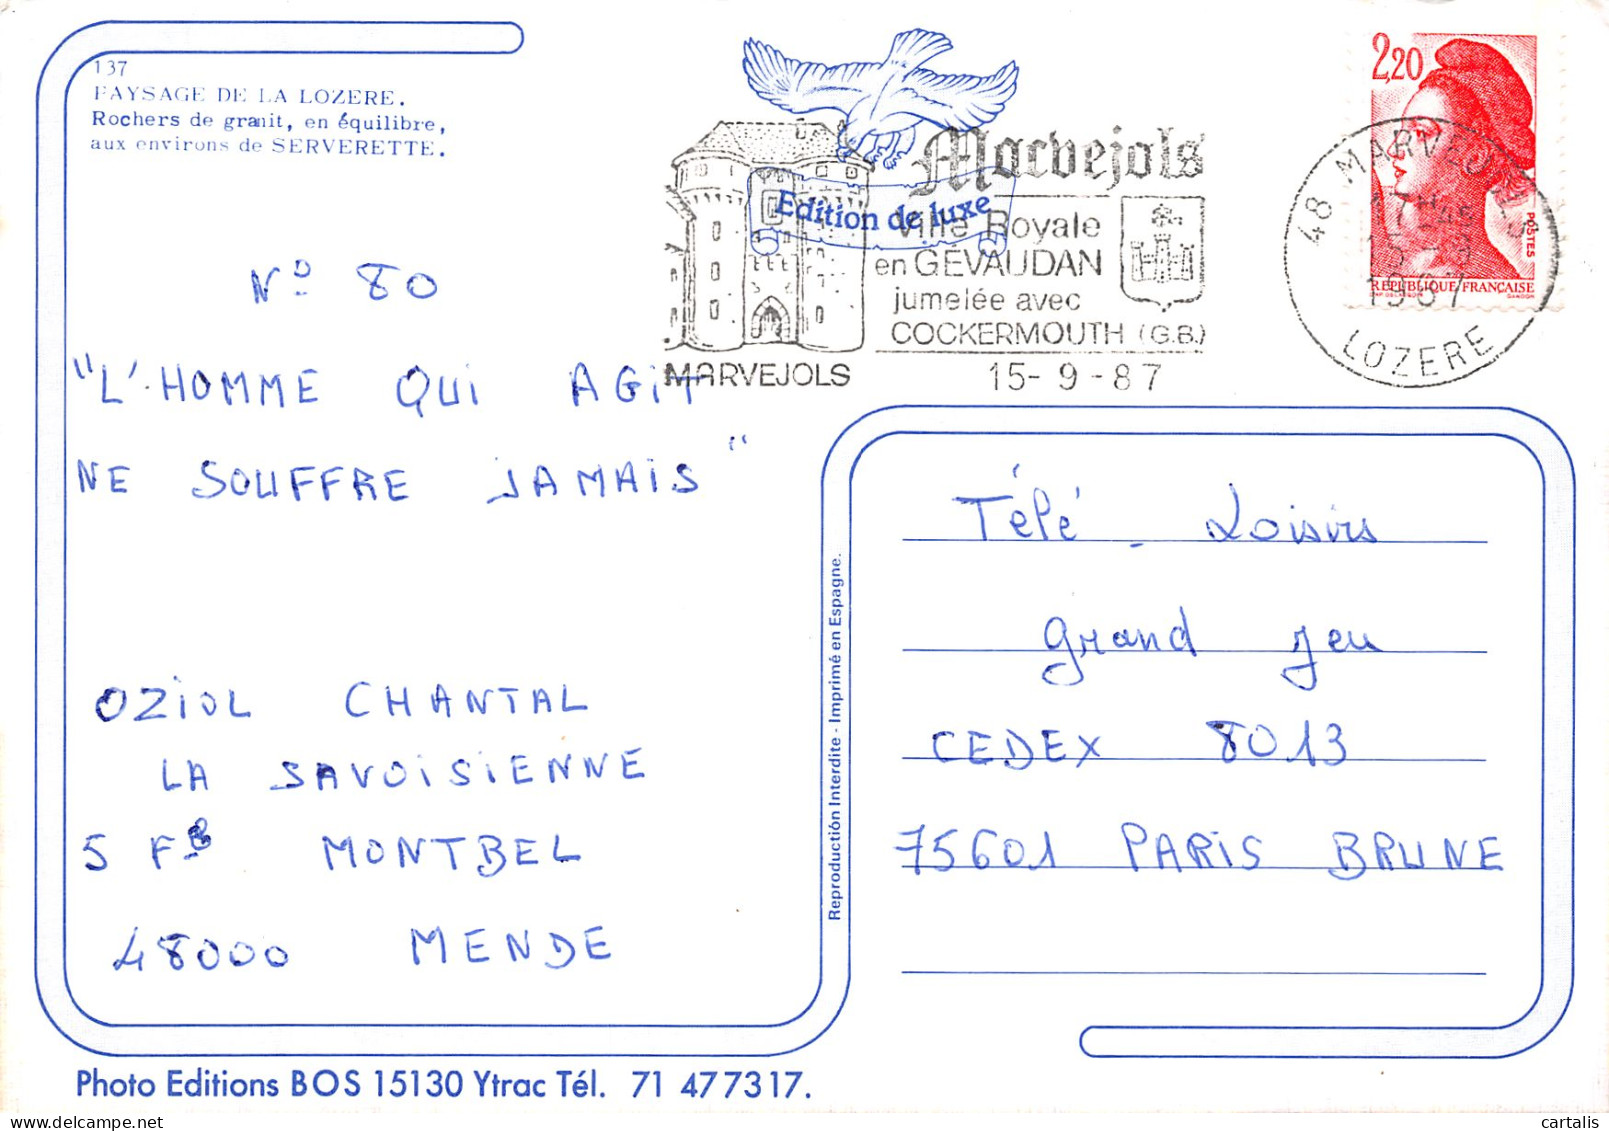 137
PAYSAGE DE LA LOZERE.
Rochers de granit, en équilibre,
aux environs de SERVERETTE.
Edition de luxe
Marvejols
Ville Royale
en GÉVAUDAN
jumelée avec
COCKERMOUTH (G.B.)
MARVEJOLS
15- 9 -87
2,20
POSTES
REPUBLIQUE FRANÇAISE
GANDON
48 MARVEJOLS
1987
LOZERE
N° 80
"L'HOMME QUI AGiT
NE SOUFFRE JAMAiS"
OZiOL CHANTAL
LA SAVOiSiENNE
5 FB MONTBEL
48000 MENDE
Reproduction Interdite - Imprimé en Espagne.
Télé - Loisirs
Grand Jeu
CEDEX 8013
75601 PARiS BRUNE
Photo Editions BOS 15130 Ytrac Tél. 71 477317.
cartalis